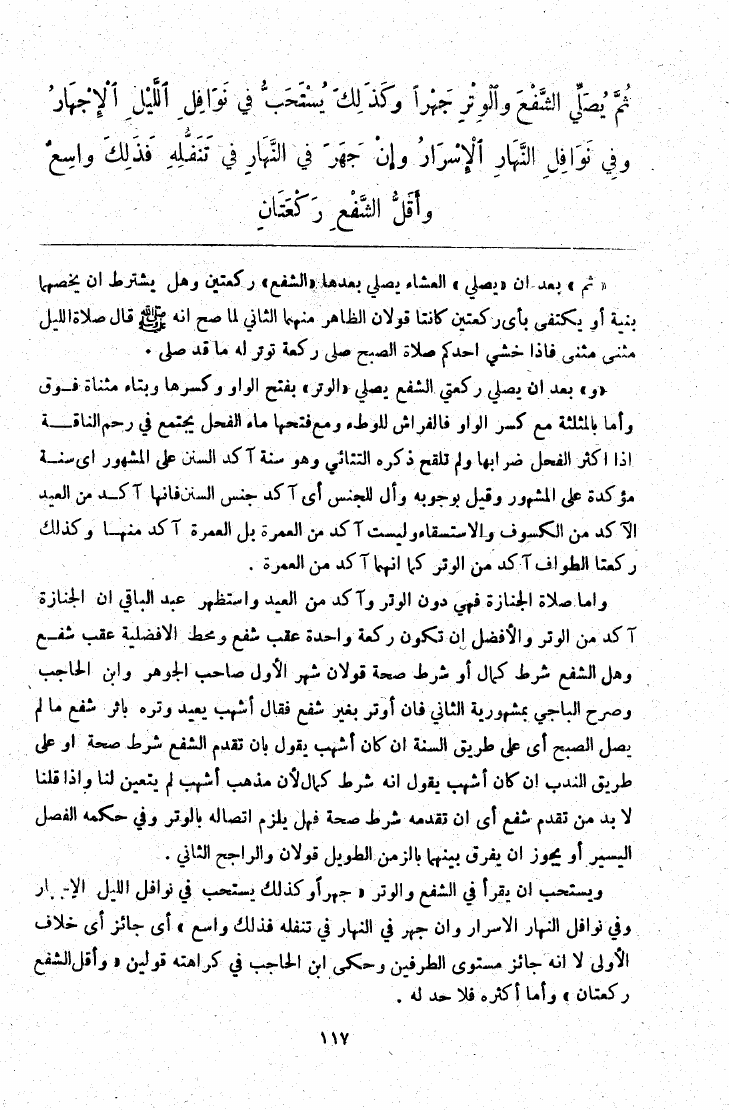 ثُمَّ يُصَلِّي الشَّفْعَ وَٱلْوِتْرَ جَهْراً وَكَذَلِكَ يُسْتَحَبُّ فِي نَوَافِلِ ٱللَّيْلِ ٱلْإِجْهَارُ
وفِي نَوَافِلِ النَّهَارِ ٱلْإِسْرَارُ وإِنْ جَهَرَ فِي النَّهَارِ فِي تَنَفُّلِهِ فَذَلِكَ واسِعٌ
وأَقَلُّ الشَّفْعِ رَكْعَتَانِ
« ثم » بعد ان «يصلي» العشاء يصلي بعدها «الشفع» ركعتين وهل يشترط ان يخصهما
بنية أو يكتفى بأى ركعتين كانتا قولان الظاهر منهما الثاني لما صح انه ﷺ قال صلاة الليل
مثنى مثنى فاذا خشي احدكم صلاة الصبح صلى ركعة توتر له ما قد صلى .
«و» بعد ان يصلي ركعتي الشفع يصلي «الوتر» بفتح الواو وكسرها وبتاء مثناة فــوق
وأما بالمثلثة مع كسر الواو فالفراش للوطء ومع فتحها ماء الفحل يجتمع في رحم الناقــــة
اذا اكثر الفحل ضرابها ولم تلقح ذكره التتائي وهو سنة آكد السنن على المشهور اى سنــة
مؤكدة على المشهور وقيل بوجوبه وأل للجنس أى آكد جنس السنن فانها آكــد من العيد
الآكد من الكسوف والاستسقاء وليست آكد من العمرة بل العمرة آكد منهــا وكذلك
ركعتا الطواف آكد من الوتر كما انهما آكد من العمرة .
واما صلاة الجنازة فهي دون الوتر وآكد من العيد واستظهر عبد الباقي ان الجنازة
آكد من الوتر والأفضل ان تكون ركعة واحدة عقب شفع ومحط الافضلية عقب شفــع
وهل الشفع شرط كمال أو شرط صحة قولان شهر الأول صاحب الجوهر وابن الحاجب
وصرح الباجي بمشهورية الثاني فان أوتر بغير شفع فقال أشهب يعيد وتره باثر شفع ما لم
يصل الصبح أى على طريق السنة ان كان أشهب يقول بان تقدم الشفع شرط صحة او على
طريق الندب ان كان أشهب يقول انه شرط كمال لأن مذهب أشهب لم يتعين لنا واذا قلنا
لا بد من تقدم شفع أى ان تقدمه شرط صحة فهل يلزم اتصاله بالوتر وفي حكمه الفصل
اليسير أو يجوز ان يفرق بينهما بالزمن الطويل قولان والراجح الثاني .
ويستحب ان يقرأ في الشفع والوتر « جهراً وكذلك يستحب في نوافل الليل
وفي نوافل النهار الاسرار وان جهر في النهار في تنفله فذلك واسع » أى جائز أى خلاف
الأولى لا انه جائز مستوى الطرفين وحكى ابن الحاجب في كراهته قولين « وأقل الشفع
ركعتان » وأما أكثره فلا حد له .
١١٧